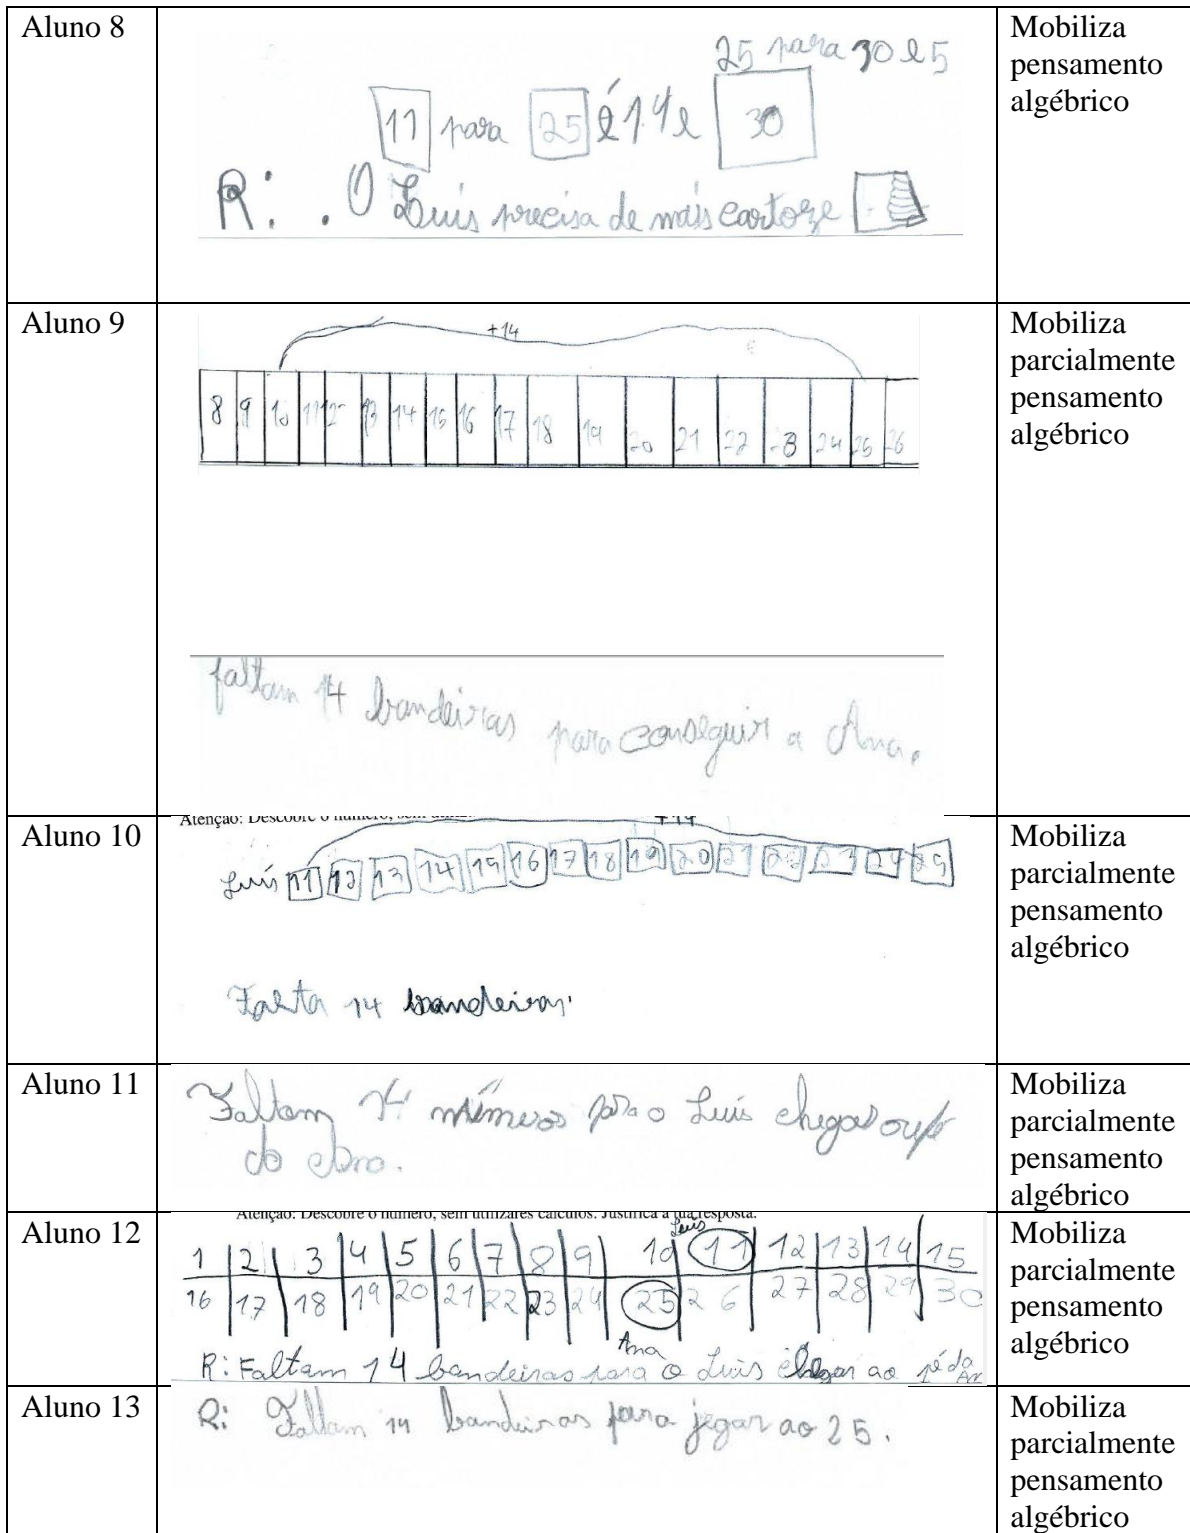 Aluno 8
25 para 30 e 5
11 para 25 é 14 e 30
R: . O Luis precisa de mais cartoze
Mobiliza
pensamento
algébrico
Aluno 9
+14
8 9 10 11 12 13 14 15 16 17 18 19 20 21 22 23 24 25 26
faltam 14 bandeiras para conseguir a Ana.
Mobiliza
parcialmente
pensamento
algébrico
Aluno 10
Atenção: Descobre o número, sem
+14
Luís 11 12 13 14 15 16 17 18 19 20 21 22 23 24 25
Falta 14 bandeiras.
Mobiliza
parcialmente
pensamento
algébrico
Aluno 11
Faltam 14 números para o Luis chegar
do
Mobiliza
parcialmente
pensamento
algébrico
Aluno 12
Atenção: Descobre o número, sem utilizares cálculos. Justifica a tua resposta.
Luis
1 2 3 4 5 6 7 8 9 10 11 12 13 14 15
16 17 18 19 20 21 22 23 24 25 26 27 28 29 30
Ana
R: Faltam 14 bandeiras para o Luis chegar ao pé da
Mobiliza
parcialmente
pensamento
algébrico
Aluno 13
R: Faltam 14 bandeiras para jegar ao 25.
Mobiliza
parcialmente
pensamento
algébrico